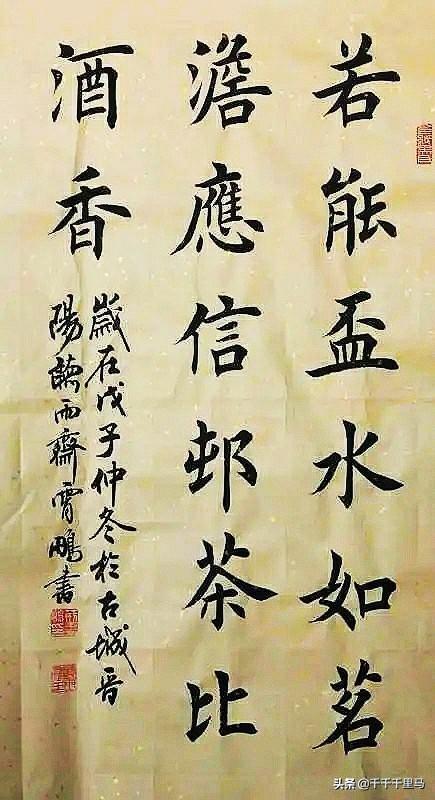 若能盃水如茗
澹應信邨茶比
酒香
歲在戊子仲冬於古城晉
陽聽雨齋霄鵬書
头条@千千千里马